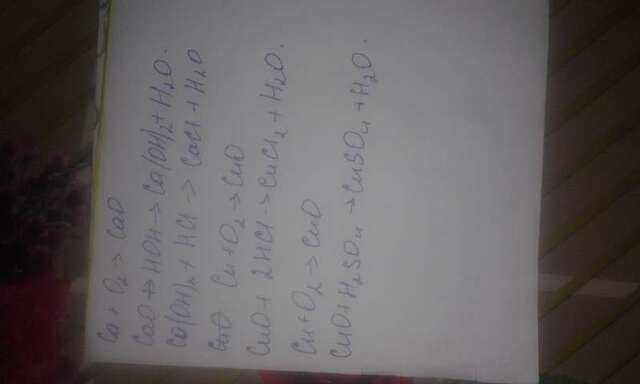 Ca + O₂ → CaO
CaO + HOH → Ca(OH)₂ + H₂O.
Ca(OH)₂ + HCl → CaCl + H₂O
CuO Cu + O₂ → CuO
CuO + 2HCl → CuCl₂ + H₂O.
Cu + O₂ → CuO
CuO + H₂SO₄ → CuSO₄ + H₂O.